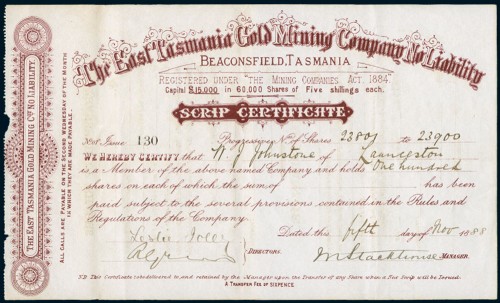 The East Tasmania Gold Mining Company No Liability
BEACONSFIELD, TASMANIA
REGISTERED UNDER "THE MINING COMPANIES ACT 1884"
Capital £15,000 in 60,000 Shares of Five shillings each.
SCRIP CERTIFICATE
No of Issue 130 Progressive Nos of Shares 23801 to 23900
WE HEREBY CERTIFY that Johnstone of Launceston
is a Member of the above named Company and holds One hundred
shares on each of which, the sum of has been
paid subject to the several provisions contained in the Rules and
Regulations of the Company.
Dated this fifth day of Nov 1888
Leslie
DIRECTORS.
MANAGER.
NB This Certificate to be delivered to, and retained by the Manager upon the Transfer of any Share when a New Scrip will be Issued.
A TRANSFER FEE OF SIXPENCE
THE EAST TASMANIA GOLD MINING Co NO LIABILITY.
ALL CALLS ARE PAYABLE ON THE SECOND WEDNESDAY OF THE MONTH
IN WHICH THEY ARE MADE PAYABLE